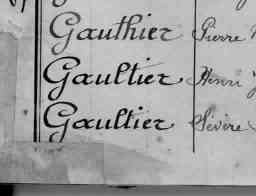 Gauthier Pierre
Gaultier Henri J
Gaultier Sévère